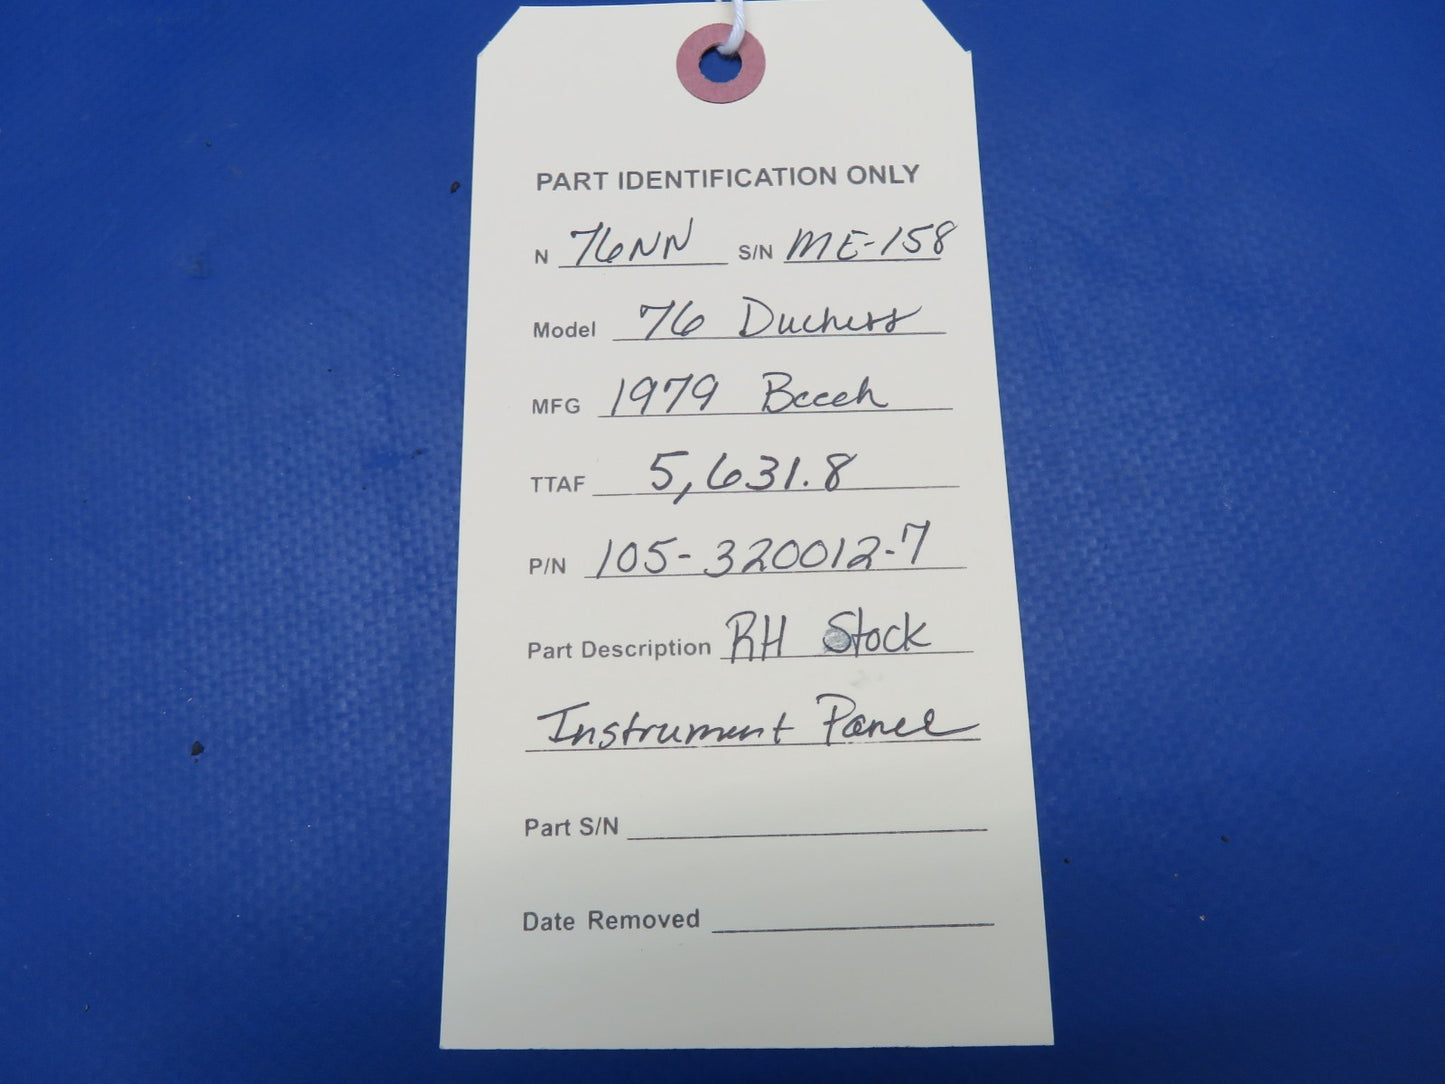 PART IDENTIFICATION ONLY
N 76NN S/N ME-158
Model 76 Duchess
MFG 1979 Beech
TTAF 5,631.8
P/N 105-320012-7
Part Description RH Stock
Instrument Panel
Part S/N
Date Removed